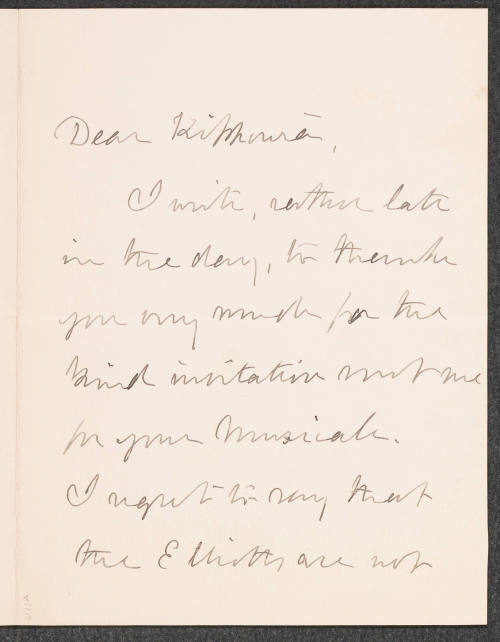 Dear
I write, rather late
in the day, to thank
you very much for the
kind invitation sent me
for your Musicale.
I regret to say that
the Elliotts are not